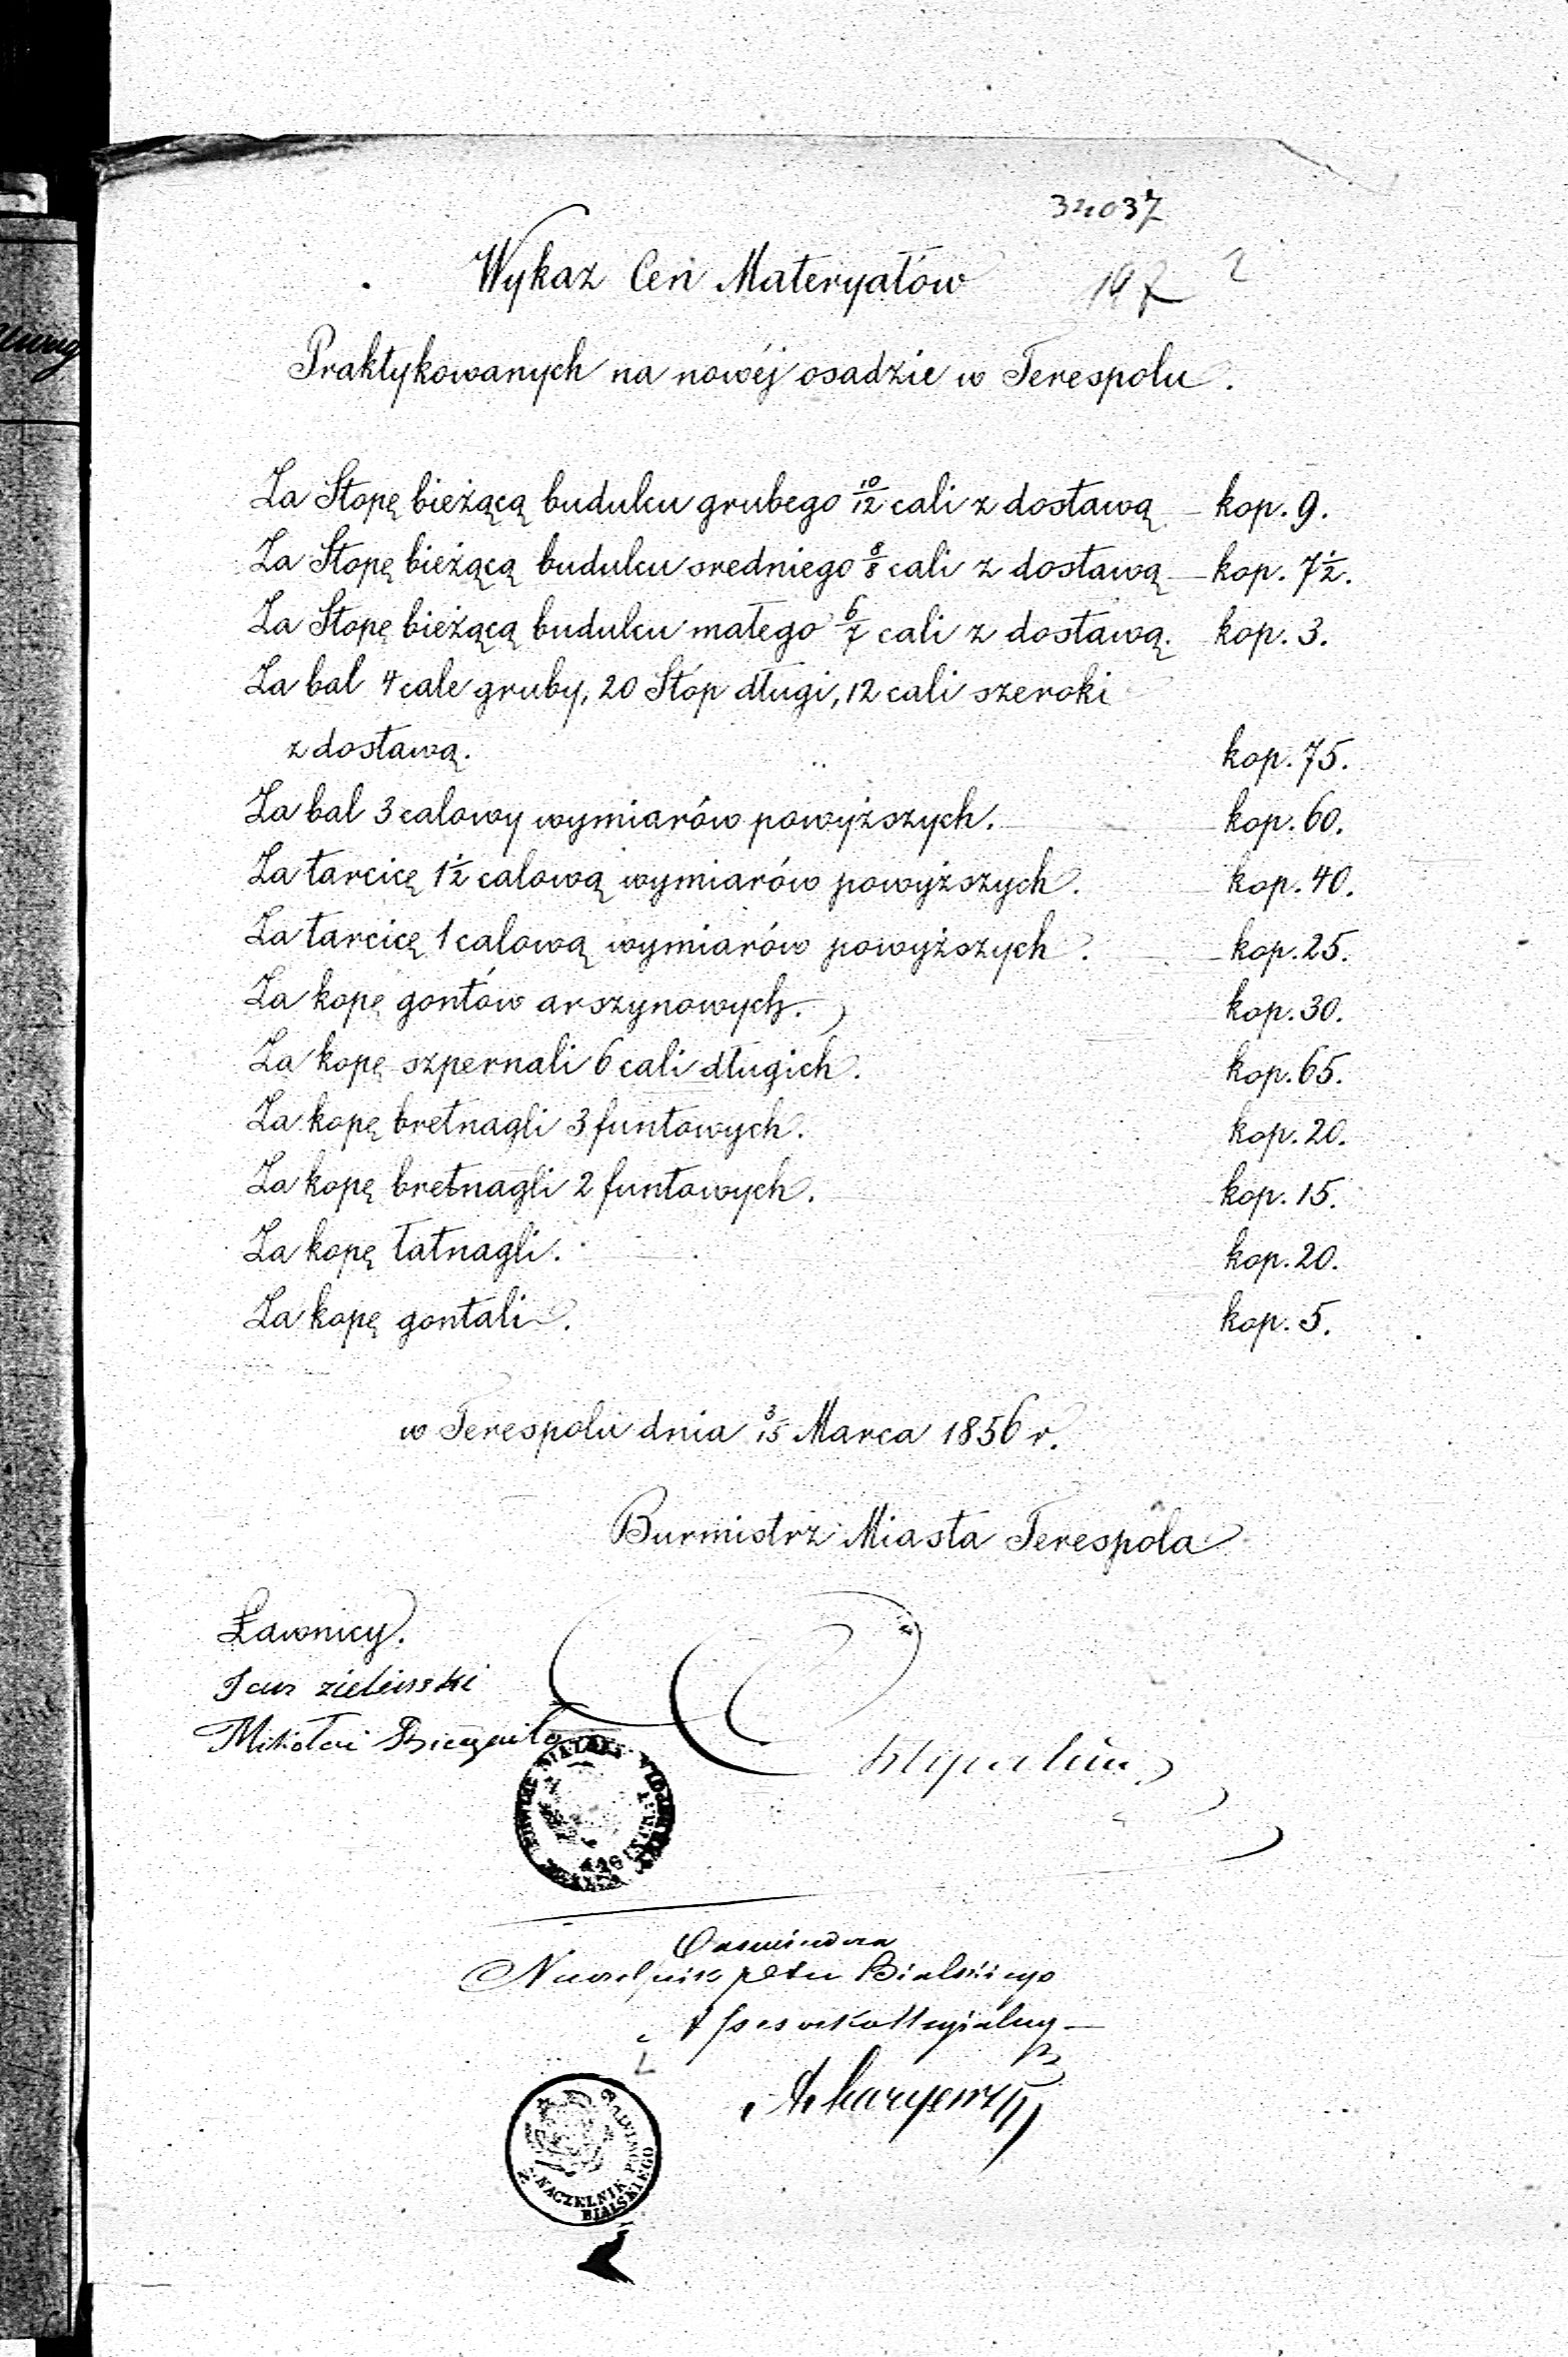 34037
Wykaz Cen Materyałów
197
Praktykowanych na nowéj osadzie w Terespolu.
Za Stopę bieżącą budulcu grubego 10/12 cali z dostawą — kop. 9.
Za Stopę bieżącą budulcu sredniego 8/8 cali z dostawą — kop. 7½.
Za Stopę bieżącą budulcu małego 6/7 cali z dostawą. kop. 3.
Za bal 4 cale gruby, 20 Stóp długi, 12 cali szeroki
z dostawą. kop. 75.
Za bal 3 calowy wymiarów powyższych. kop. 60.
Za tarcicę 1½ calową wymiarów powyższych. kop. 40.
Za tarcicę 1 calową wymiarów powyższych. kop. 25.
Za kopę gontów arszynowych. kop. 30.
Za kopę szpernali 6 cali długich. kop. 65.
Za kopę bretnagli 3 funtowych. kop. 20.
Za kopę bretnagli 2 funtowych. kop. 15.
Za kopę łatnagli. kop. 20.
Za kopę gontali. kop. 5.
w Terespolu dnia 3/15 Marca 1856 r.
Burmistrz Miasta Terespola
Ławnicy.
Jan zielinski
Mikołai
Naczelnik Bialskiego
NACZELNIK POWIATU
BIALSKIEGO